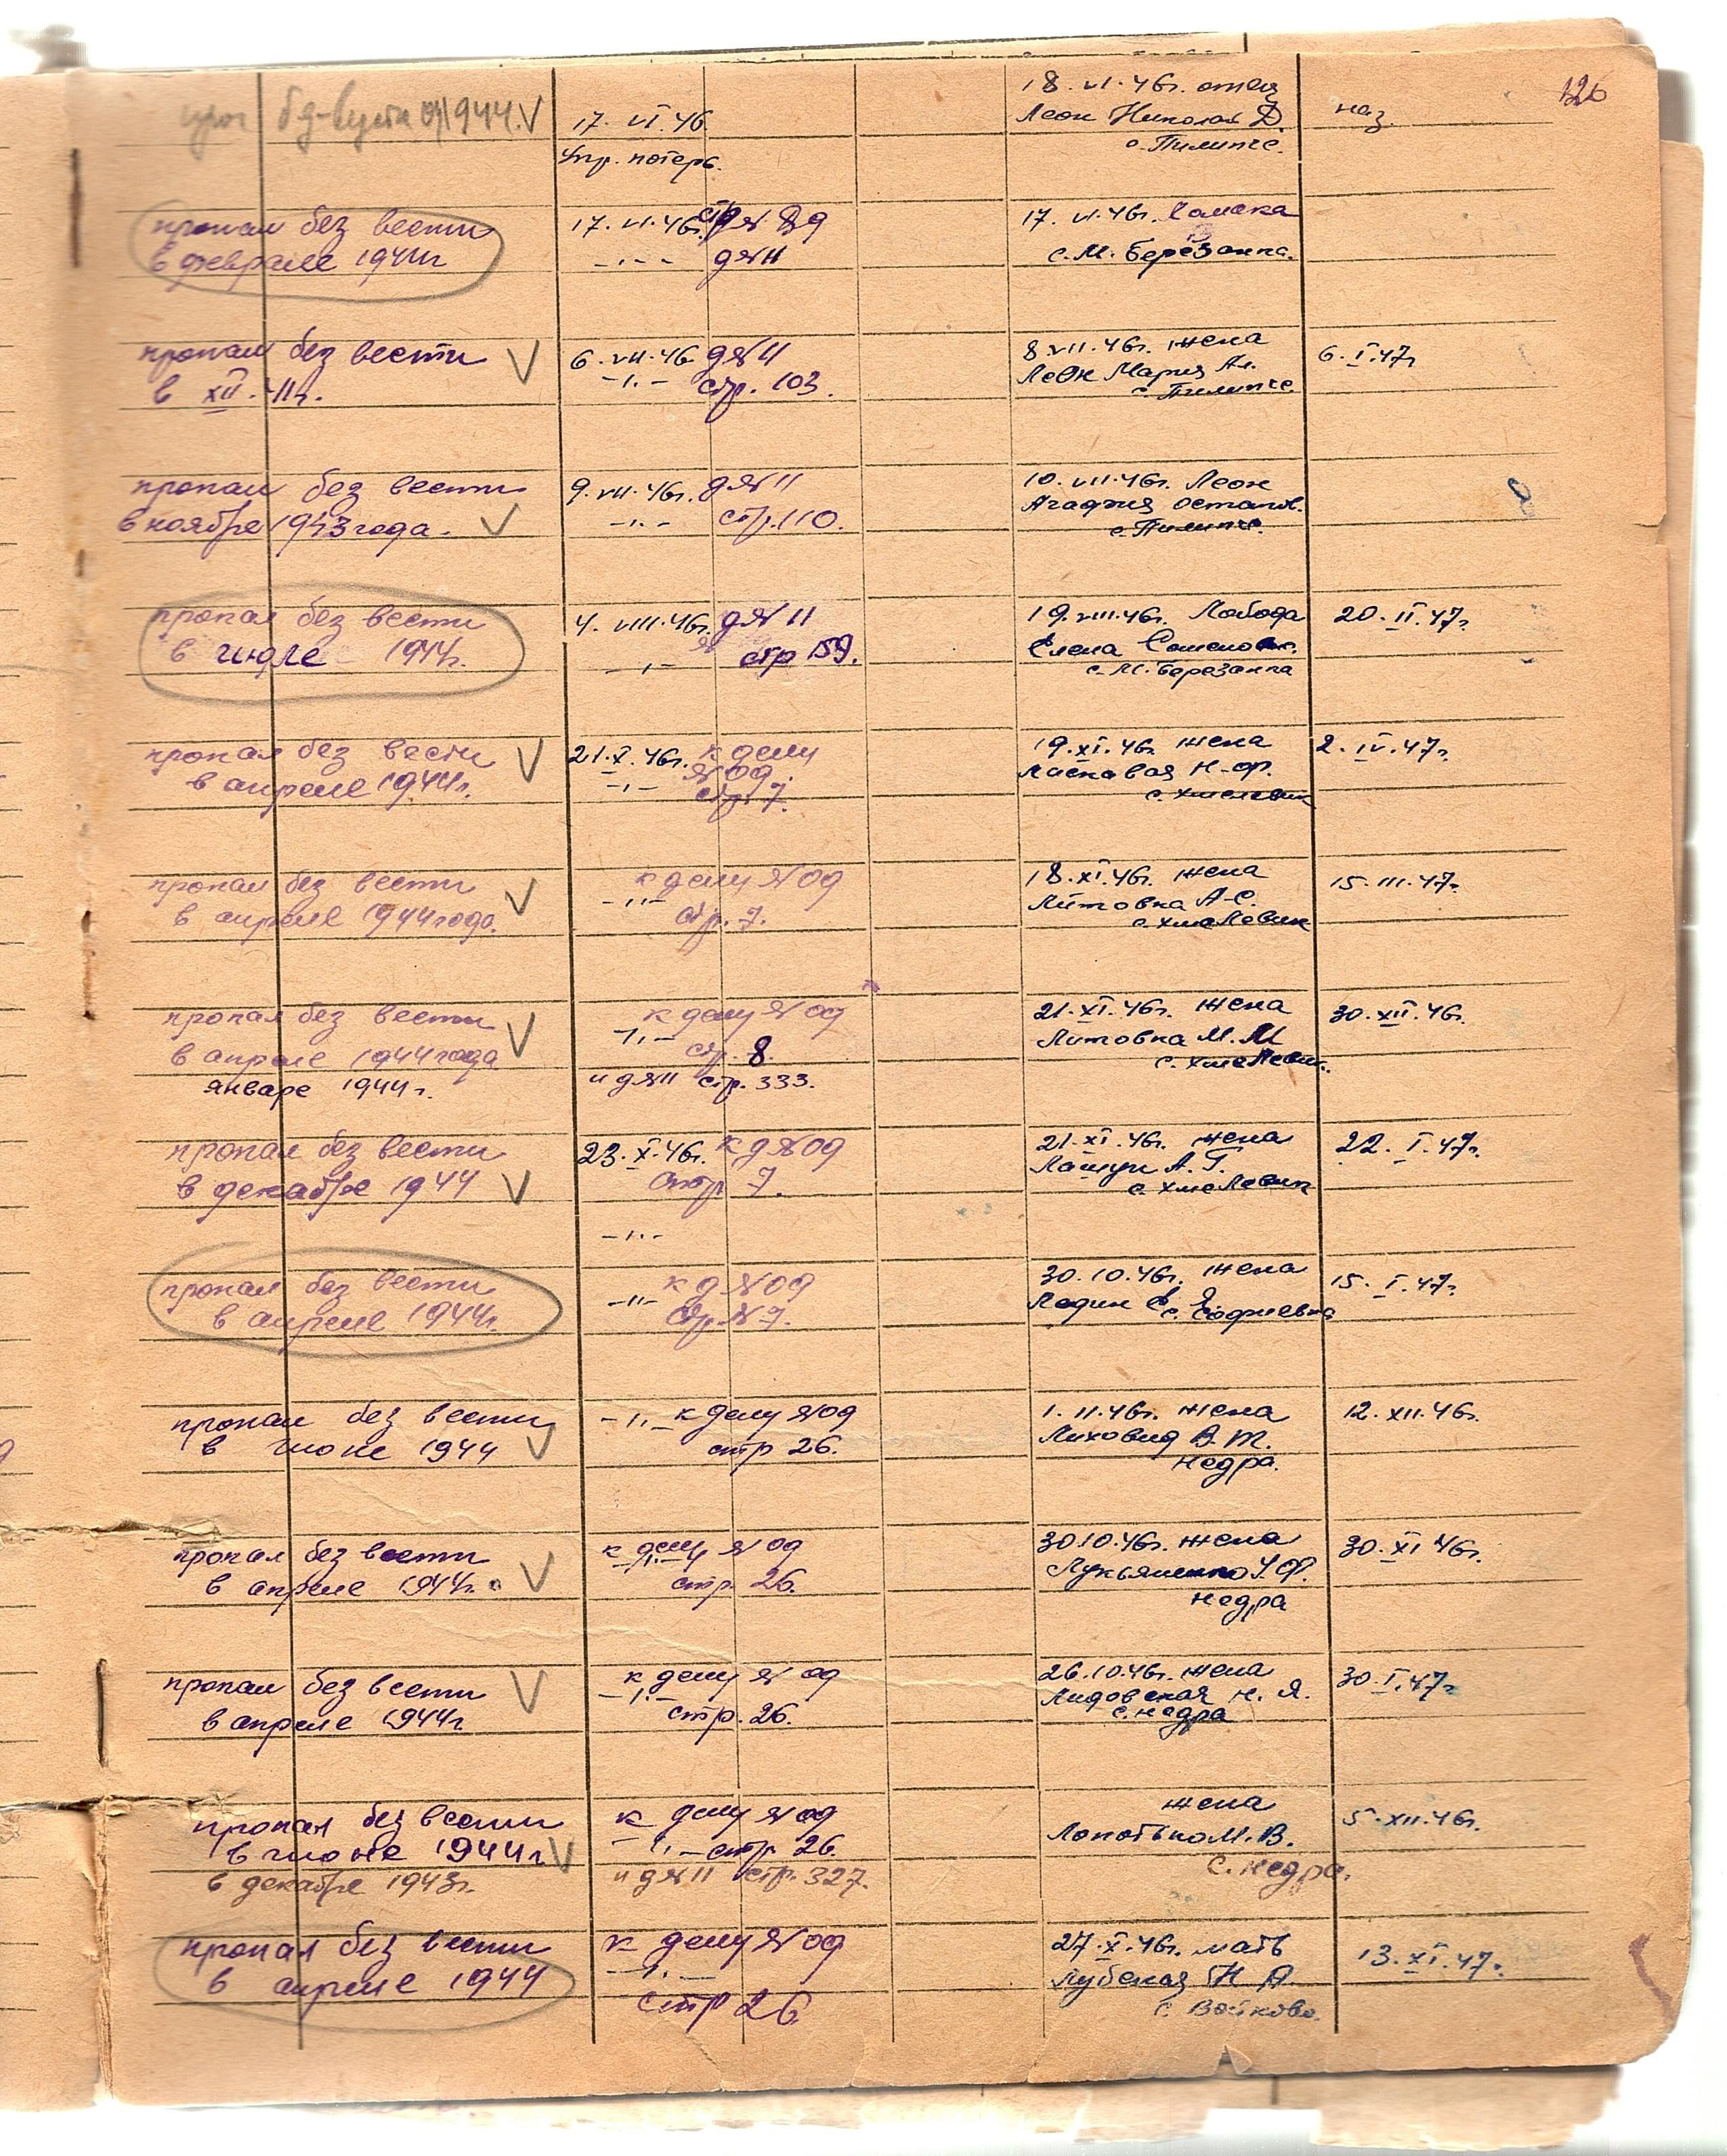 126
1944.
17. VI. 46
Упр. потерь.
18. VI. 46г. отец
Леон Николай Д.
с. Пилипче.
наз.
пропал без вести
в феврале 1944г
17. VI. 46г. стр
-"- д №11
17. VI. 46г.
с. М. Березанка.
пропал без вести
в XII. 41г.
6. VII. 46 д №11
-"- стр. 103.
8. VII. 46г. жена
Леон Мария Ал.
с. Пилипче
6. I. 47г
пропал без вести
в ноябре 1943 года.
9. VII. 46г. д №11
-"- стр. 110.
10. VII. 46г. Леон
Агафия Остапов.
с. Пилипче.
пропал без вести
в июле 1944г.
4. VIII. 46г. д №11
-"- стр 159.
19. VIII. 46г. Лобода
Елена Семеновн.
с. М. Березанка
20. II. 47г.
пропал без вести
в апреле 1944г.
21. X. 46г. к делу
№09.
-"- стр. 7.
19. XI. 46г жена
Ласкавая Н. Ф.
с. Хмелевик
2. IV. 47г.
пропал без вести
в апреле 1944 года.
к делу №09
-"- стр. 7.
18. XI. 46г. жена
Литовка А. С.
с. Хмелевик
15. III. 47г.
пропал без вести
в апреле 1944 года
январе 1944г.
к делу №09
-"- стр. 8.
и д №11 стр. 333.
21. XI. 46г. жена
Литовка М. М
с. Хмелевик.
30. XII. 46г.
пропал без вести
в декабре 1944
23. X. 46г. к д №09
стр 7.
-"-
21. XI. 46г. жена
А. Г.
с. Хмелевик
22. I. 47г.
пропал без вести
в апреле 1944г.
-"- к д №09
стр. № 7.
30. 10. 46г. жена
Ледин Е. Я
с. Софиевка
15. I. 47г.
пропал без вести
в июне 1944
-"- к делу №09
стр 26.
1. 11. 46г. жена
Лиховид В. Т.
Недра.
12. XII. 46г.
пропал без вести
в апреле 1944г.
к делу №09
-"- стр. 26.
30 10. 46г. жена
Лукьяненко У. Ф.
Недра
30. XI 46г.
пропал без вести
в апреле 1944г
к делу №09
-"- стр. 26.
26. 10. 46г. жена
Лидовская Н. Я.
с. Недра
30. I. 47г
пропал без вести
в июне 1944г
в декабре 1943г.
к делу №09
-"- стр. 26.
и д №11 стр. 327.
жена
Лопотько М. В.
с. Недра.
5. XII. 46г.
пропал без вести
в апреле 1944
к делу №09
-"-
стр 26
27. X. 46г. мать
Лубская Н А.
с. Войково.
13. XI. 47г.